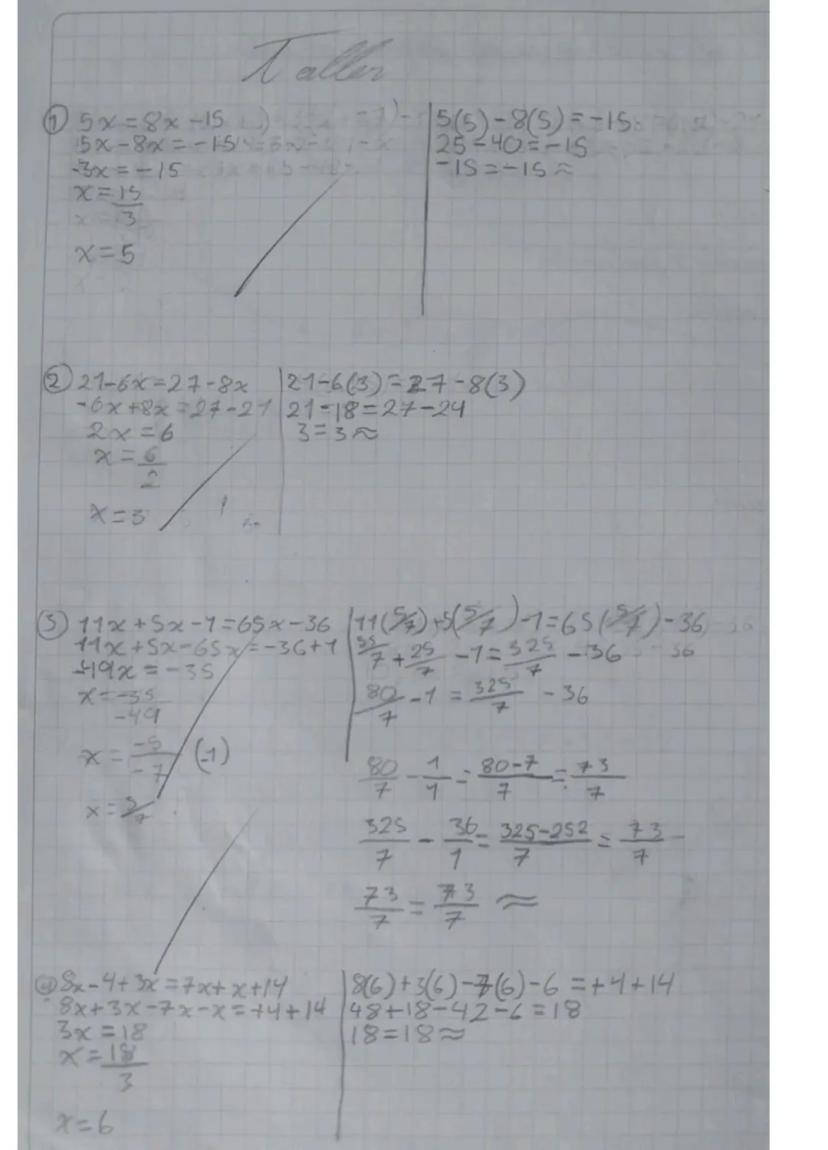 Taller
① 5x = 8x - 15
5x - 8x = -15
-3x = -15
x = 15/3
x = 5
5(5) - 8(5) = -15
25 - 40 = -15
-15 = -15 ≈
② 21 - 6x = 27 - 8x
-6x + 8x = 27 - 21
2x = 6
x = 6/2
x = 3
21 - 6(3) = 27 - 8(3)
21 - 18 = 27 - 24
3 = 3 ≈
③ 11x + 5x - 1 = 65x - 36
11x + 5x - 65x = -36 + 1
-49x = -35
x = -35/-49
x = -5/-7 (-1)
x = 5/7
11(5/7) + 5(5/7) - 1 = 65(5/7) - 36
55/7 + 25/7 - 1 = 325/7 - 36
80/7 - 1 = 325/7 - 36
80/7 - 1/1 = 80-7/7 = 73/7
325/7 - 36/1 = 325-252/7 = 73/7
73/7 = 73/7 ≈
④ 8x - 4 + 3x = 7x + x + 14
8x + 3x - 7x - x = +4 + 14
3x = 18
x = 18/3
x = 6
8(6) + 3(6) - 7(6) - 6 = +4 + 14
48 + 18 - 42 - 6 = 18
18 = 18 ≈